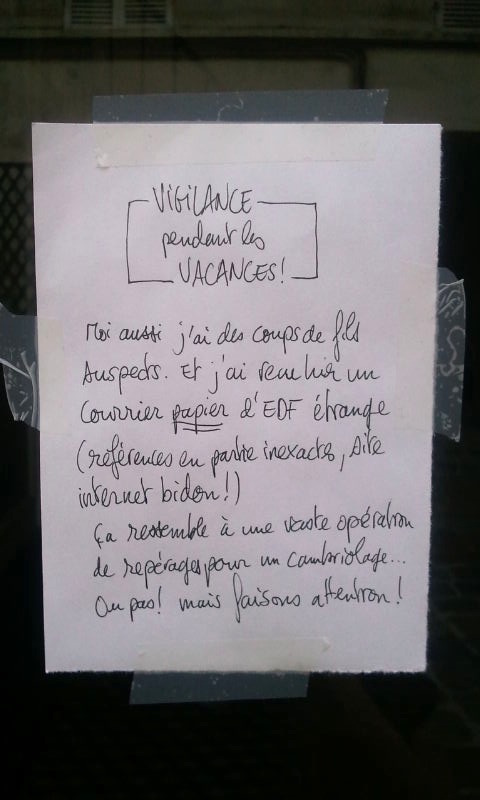 VIGILANCE
pendant les
VACANCES!
Moi aussi j'ai des coups de fils
suspects. Et j'ai reçu hier un
courrier papier d'EDF étrange
(références en partie inexactes, site
internet bidon!)
Ça ressemble à une vaste opération
de repérages pour un cambriolage...
Ou pas! mais faisons attention!